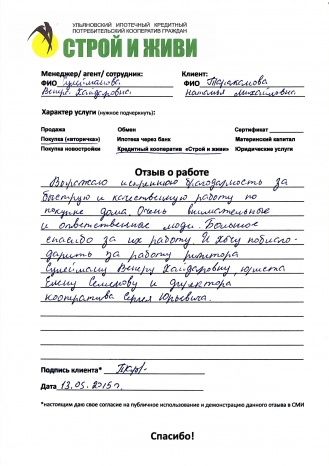 УЛЬЯНОВСКИЙ ИПОТЕЧНЫЙ КРЕДИТНЫЙ
ПОТРЕБИТЕЛЬСКИЙ КООПЕРАТИВ ГРАЖДАН
СТРОЙ И ЖИВИ
Менеджер/ агент/ сотрудник: Клиент:
ФИО Сулейманова ФИО Таракамова
Венера Хайдаровна Наталья Михайловна
Характер услуги (нужное подчеркнуть):
Продажа Обмен Сертификат
Покупка («вторичка») Ипотека через банк Материнский капитал
Покупка новостройки Кредитный кооператив «Строй и живи» Юридические услуги
Отзыв о работе
Выражаю искреннюю благодарность за
быструю и качественную работу по
покупке дома. Очень внимательные
и ответственные люди. Большое
спасибо за их работу. И хочу поблаго-
дарить за работу риэлтора
Сулейманову Венеру Хайдаровну, юриста
Елену Семенову и директора
кооператива Сергея Юрьевича.
Подпись клиента*
Дата 13.05.2015 г.
*настоящим даю свое согласие на публичное использование и демонстрацию данного отзыва в СМИ
Спасибо!